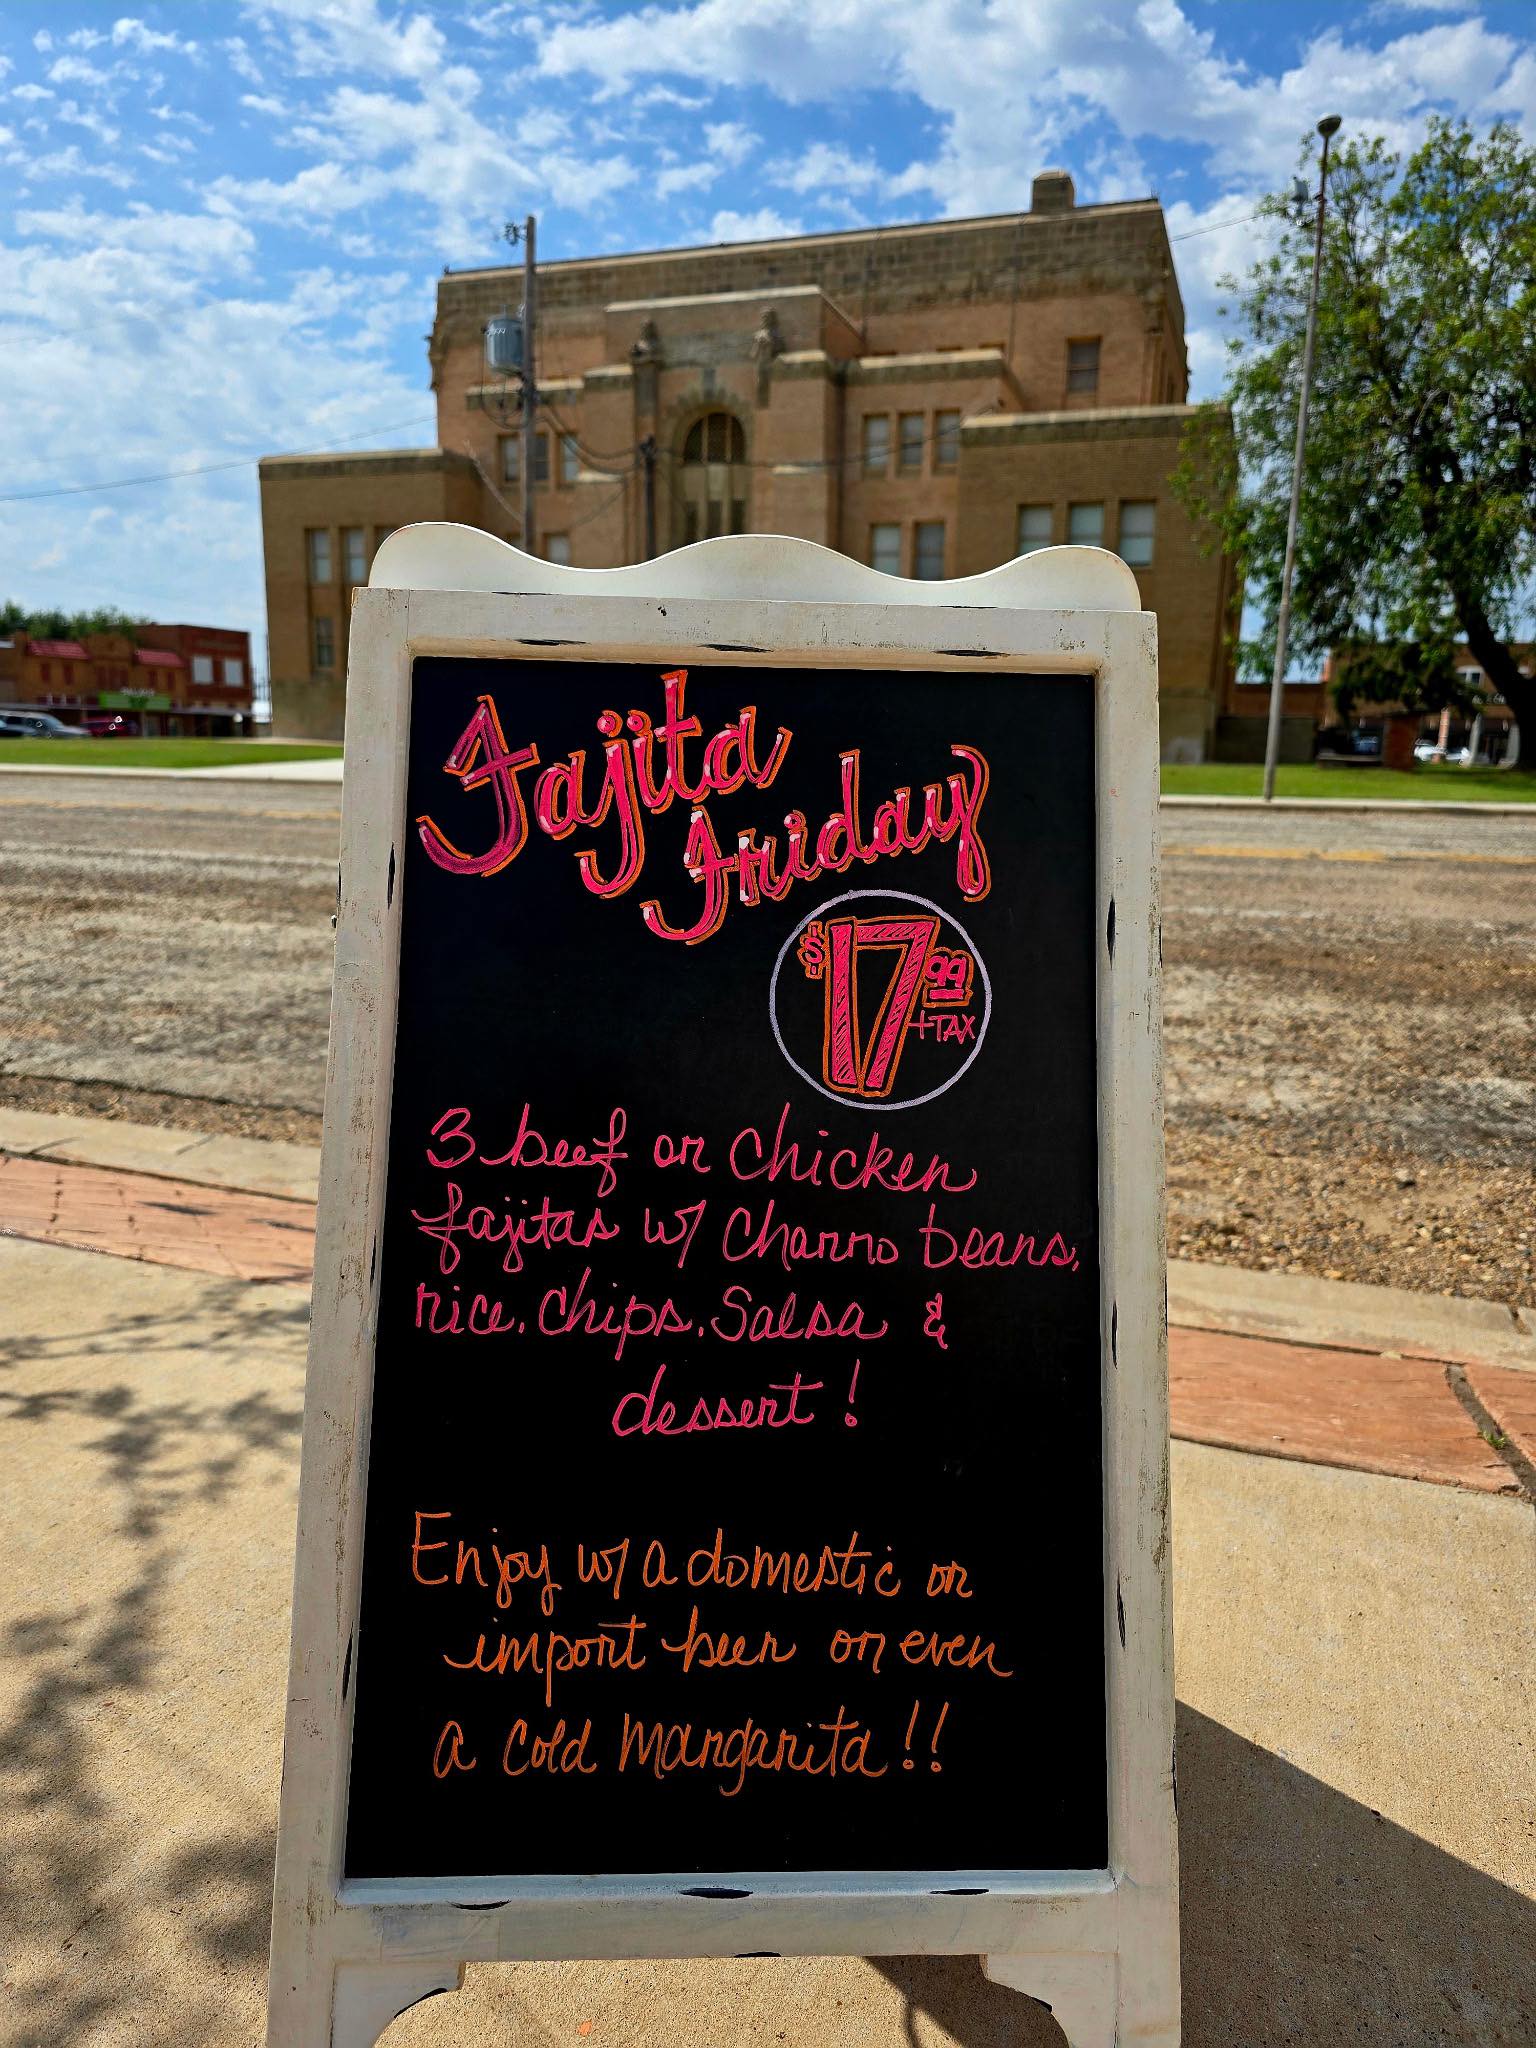 Fajita
Friday
$17.99
+TAX
3 beef or chicken
fajitas w/ Charro beans,
rice, chips, salsa &
dessert!
Enjoy w/ a domestic or
import beer or even
a cold margarita!!